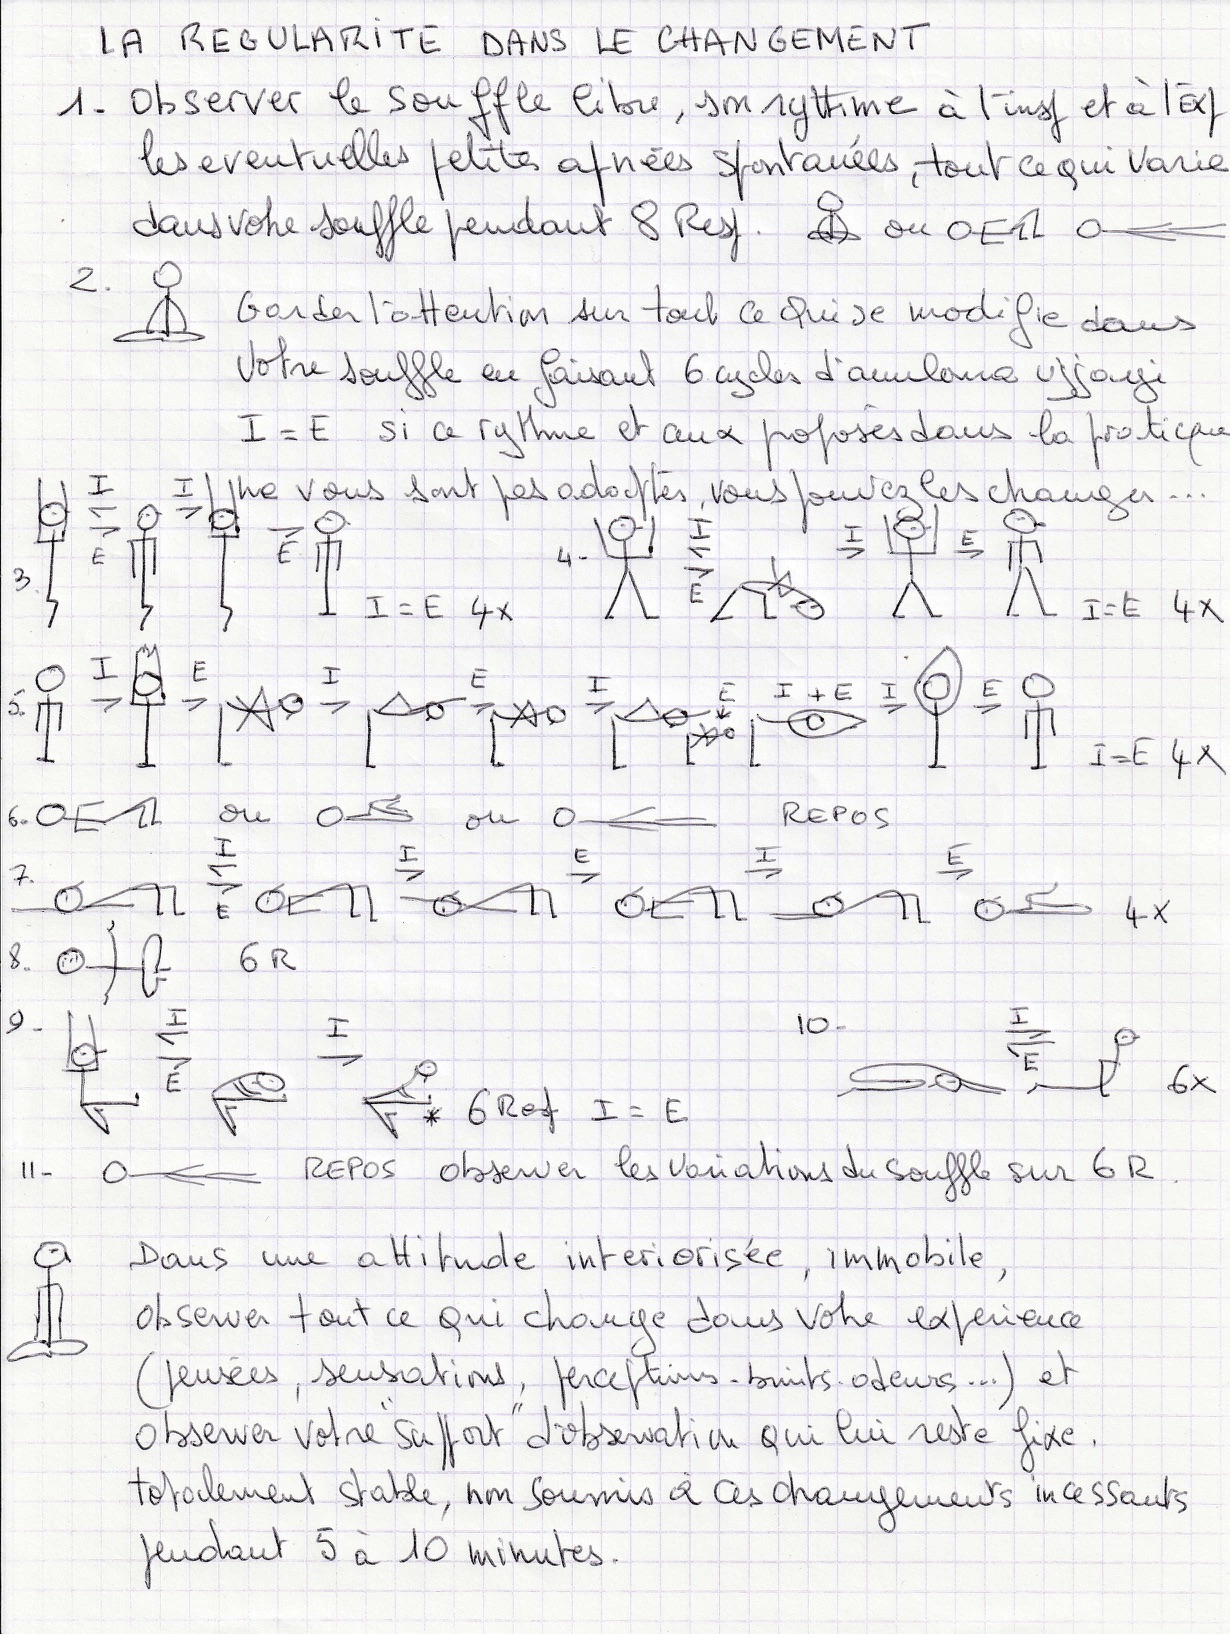 LA REGULARITE DANS LE CHANGEMENT
1- Observer le souffle libre, son rythme à l'insp et à l'Exp
les eventuelles petites apnées spontanées, tout ce qui varie
dans votre souffle pendant 8 Resp. ou ou
2.
Garder l'attention sur tout ce qui se modifie dans
votre souffle en faisant 6 cycles d'anuloma ujjayi
I = E si ce rythme et ceux proposés dans la pratique
ne vous sont pas adaptés, vous pouvez les changer...
3. I E I E I = E 4x
4- I E I E I = E 4x
5. I E I E I E I + E I E I = E 4x
6. ou ou REPOS
7. I E I E I E 4x
8. 6 R
9- I E I * 6 Resp I = E
10- I E 6x
11- REPOS observer les variations du souffle sur 6 R.
Dans une attitude interiorisée, immobile,
observer tout ce qui change dans votre experience
(pensées, sensations, perceptions-bruits-odeurs...) et
observer votre "support" d'observation qui lui reste fixe,
totalement stable, non soumis à ces changements incessants
pendant 5 à 10 minutes.